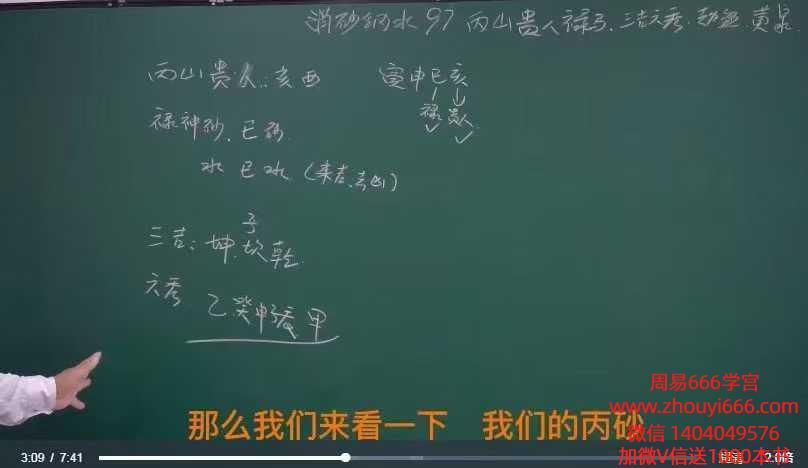 消砂纳水97 丙山贵人禄马.三吉六秀.劫煞.黄泉
丙山贵人:亥酉 寅申巳亥
禄 贵人
禄神砂.巳砂
水 巳水(来吉.去凶)
子
三吉:坤.坎乾
六秀 乙癸申 甲
那么我们来看一下 我们的丙砂
周易666学宫
www.zhouyi666.com
微信 1404049576
加微V信送1000本书
3:09 / 7:41
2.0倍